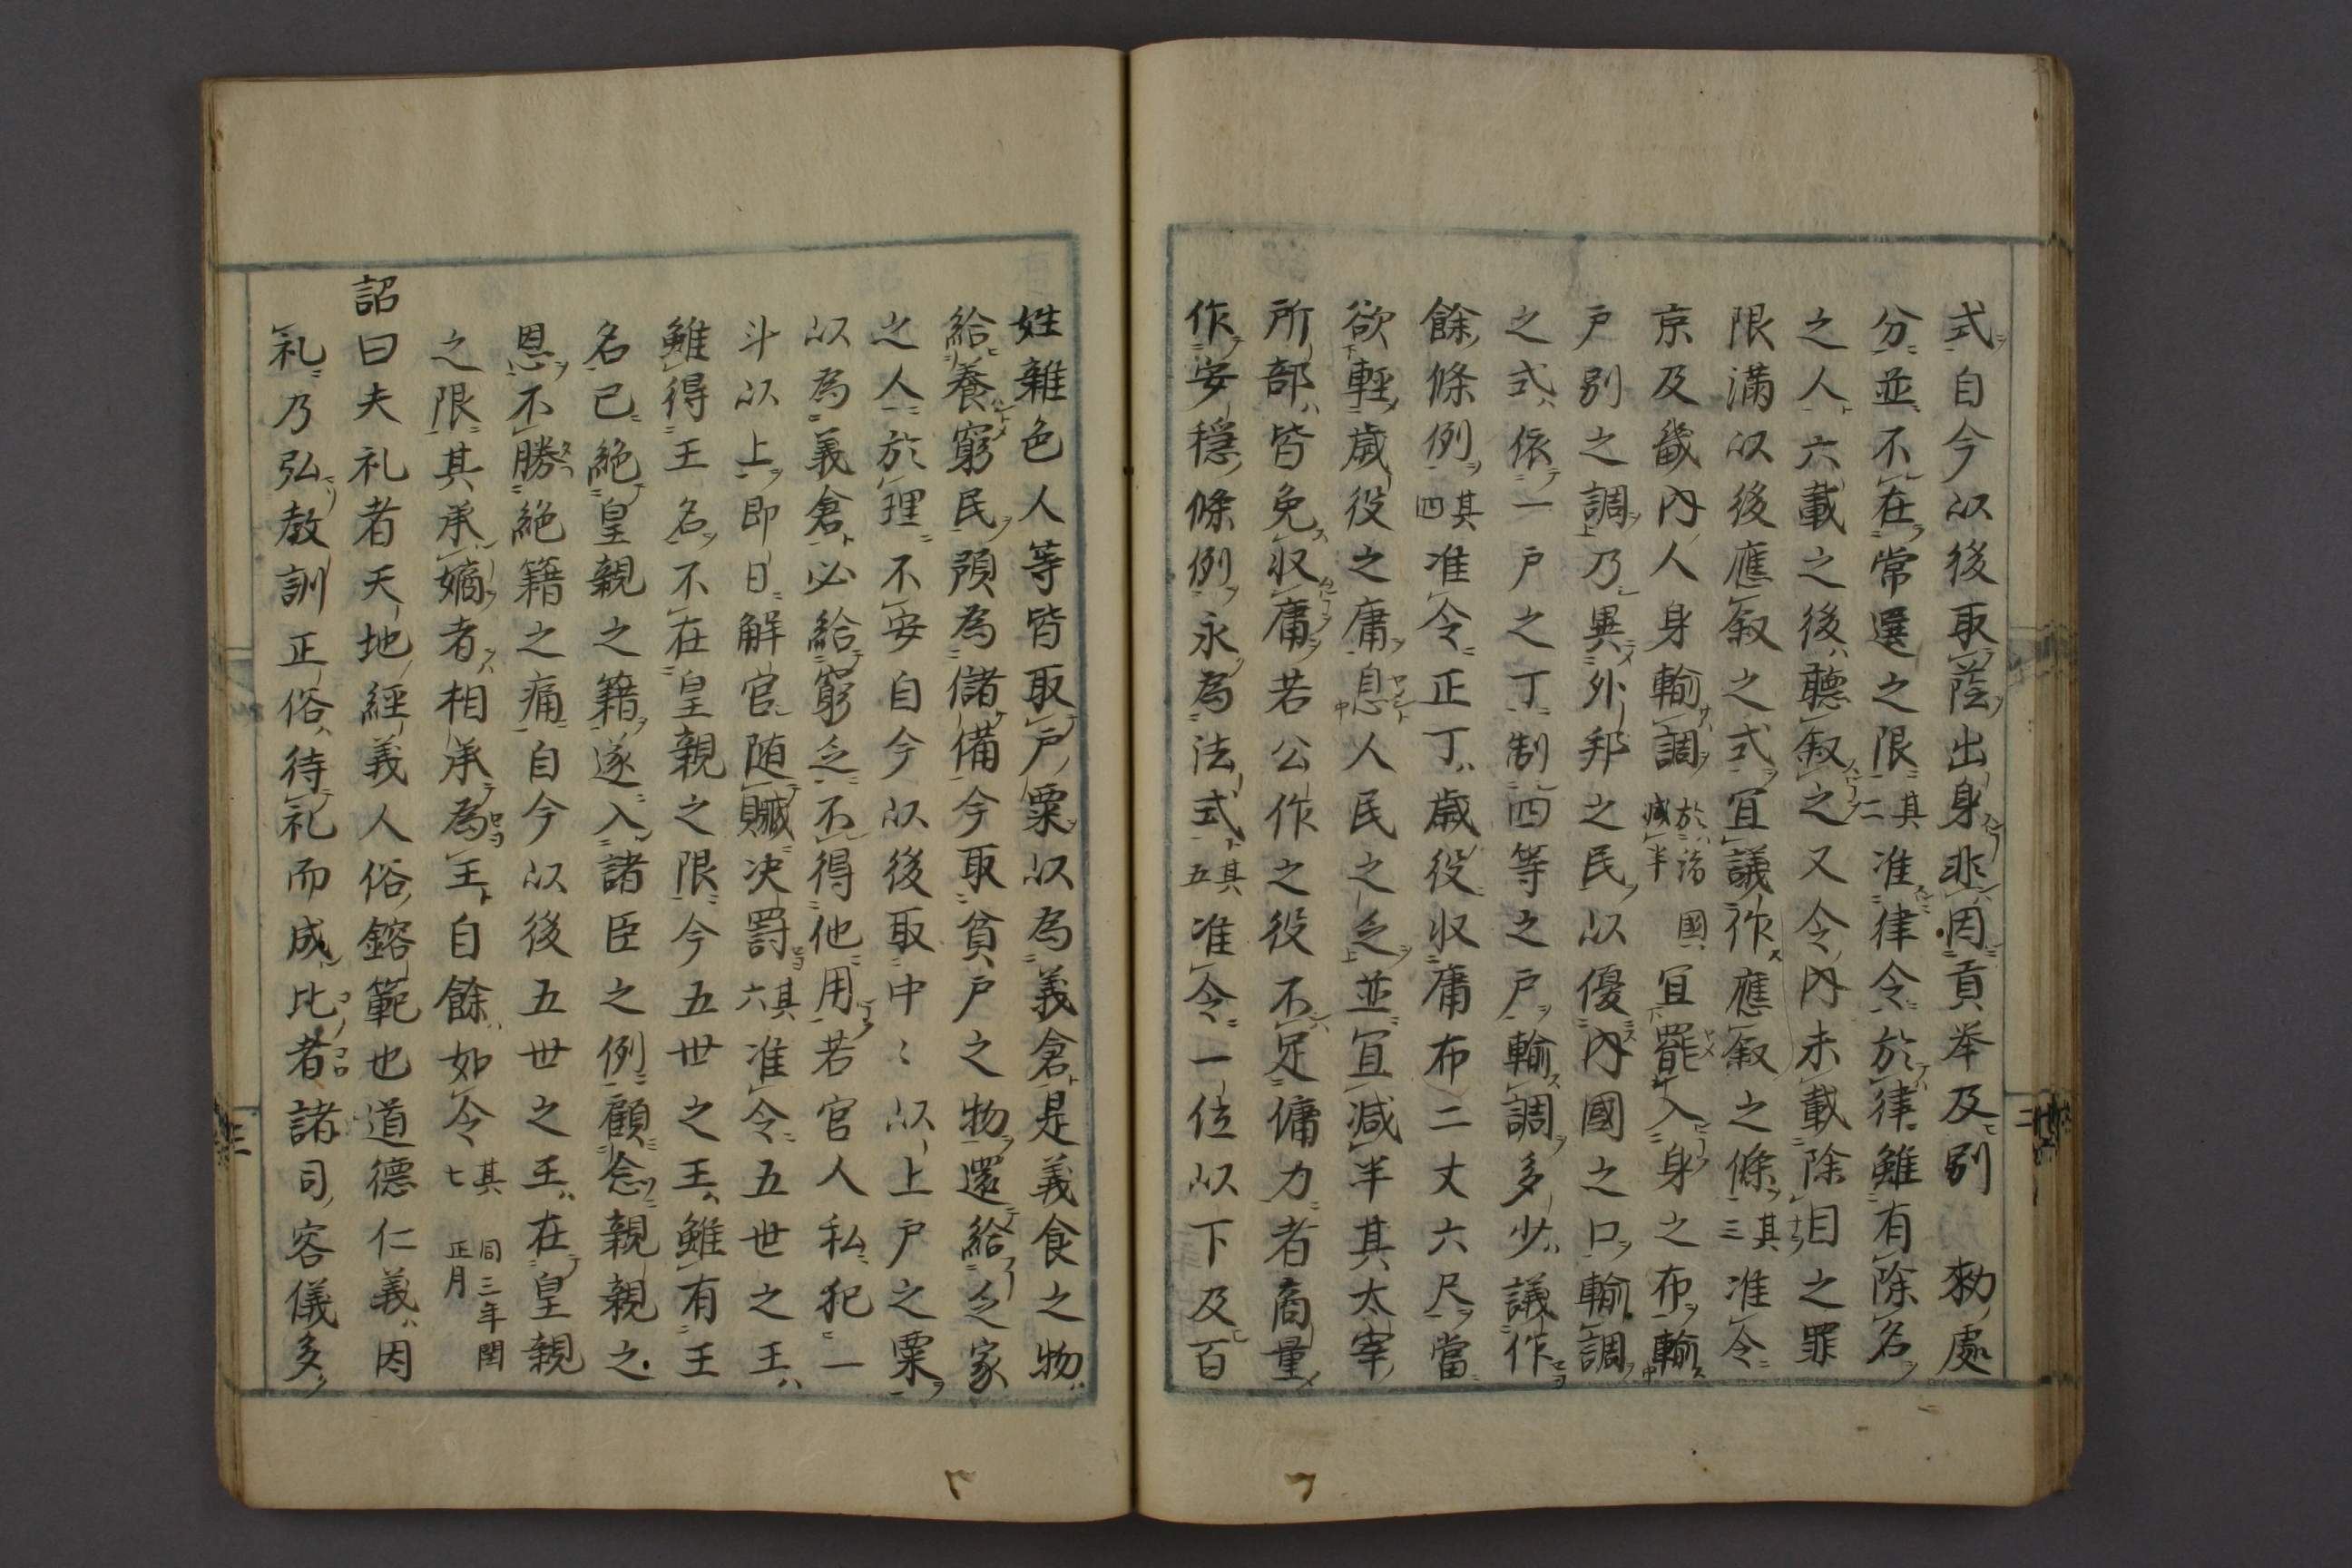 式自今以後取蔭出身非因貢举及別　勅處
分並不在常選之限其二准律令於律雖有除名
之人六載之後聽叙之又令内未載除目之罪
限満以後應叙之式宜議作應叙之條其三准令
京及畿内人身輸調於諸國減半宜罷入身之布輸
戸別之調乃異外邦之民以優内國之口輸調
之式依一戸之丁制四等之戸輸調多少議作
餘條例其四准令正丁歳役収庸布二丈六尺當
欲輕歳役之庸息人民之乏並宜減半其太宰
所部皆免収庸若公作之役不足傭力者商量
作安穏條例永為法式其五准令一位以下及百
姓雜色人等皆取戸粟以為義倉是義食之物
給養窮民預為儲備今取貧戸之物還給乏家
之人於理不安自今以後取中〻以上戸之粟
以為義倉必給窮乏不得他用若官人私犯一
斗以上即日解官随贓決罸其六准令五世之王
雖得王名不在皇親之限今五世之王雖有王
名已絶皇親之籍遂入諸臣之例顧念親親之
恩不勝絶籍之痛自今以後五世之王在皇親
之限其承嫡者相承為王自餘如令其七同三年閏正月
詔曰夫礼者天地經義人俗鎔範也道德仁義因
礼乃弘教訓正俗待礼而成比者諸司容儀多